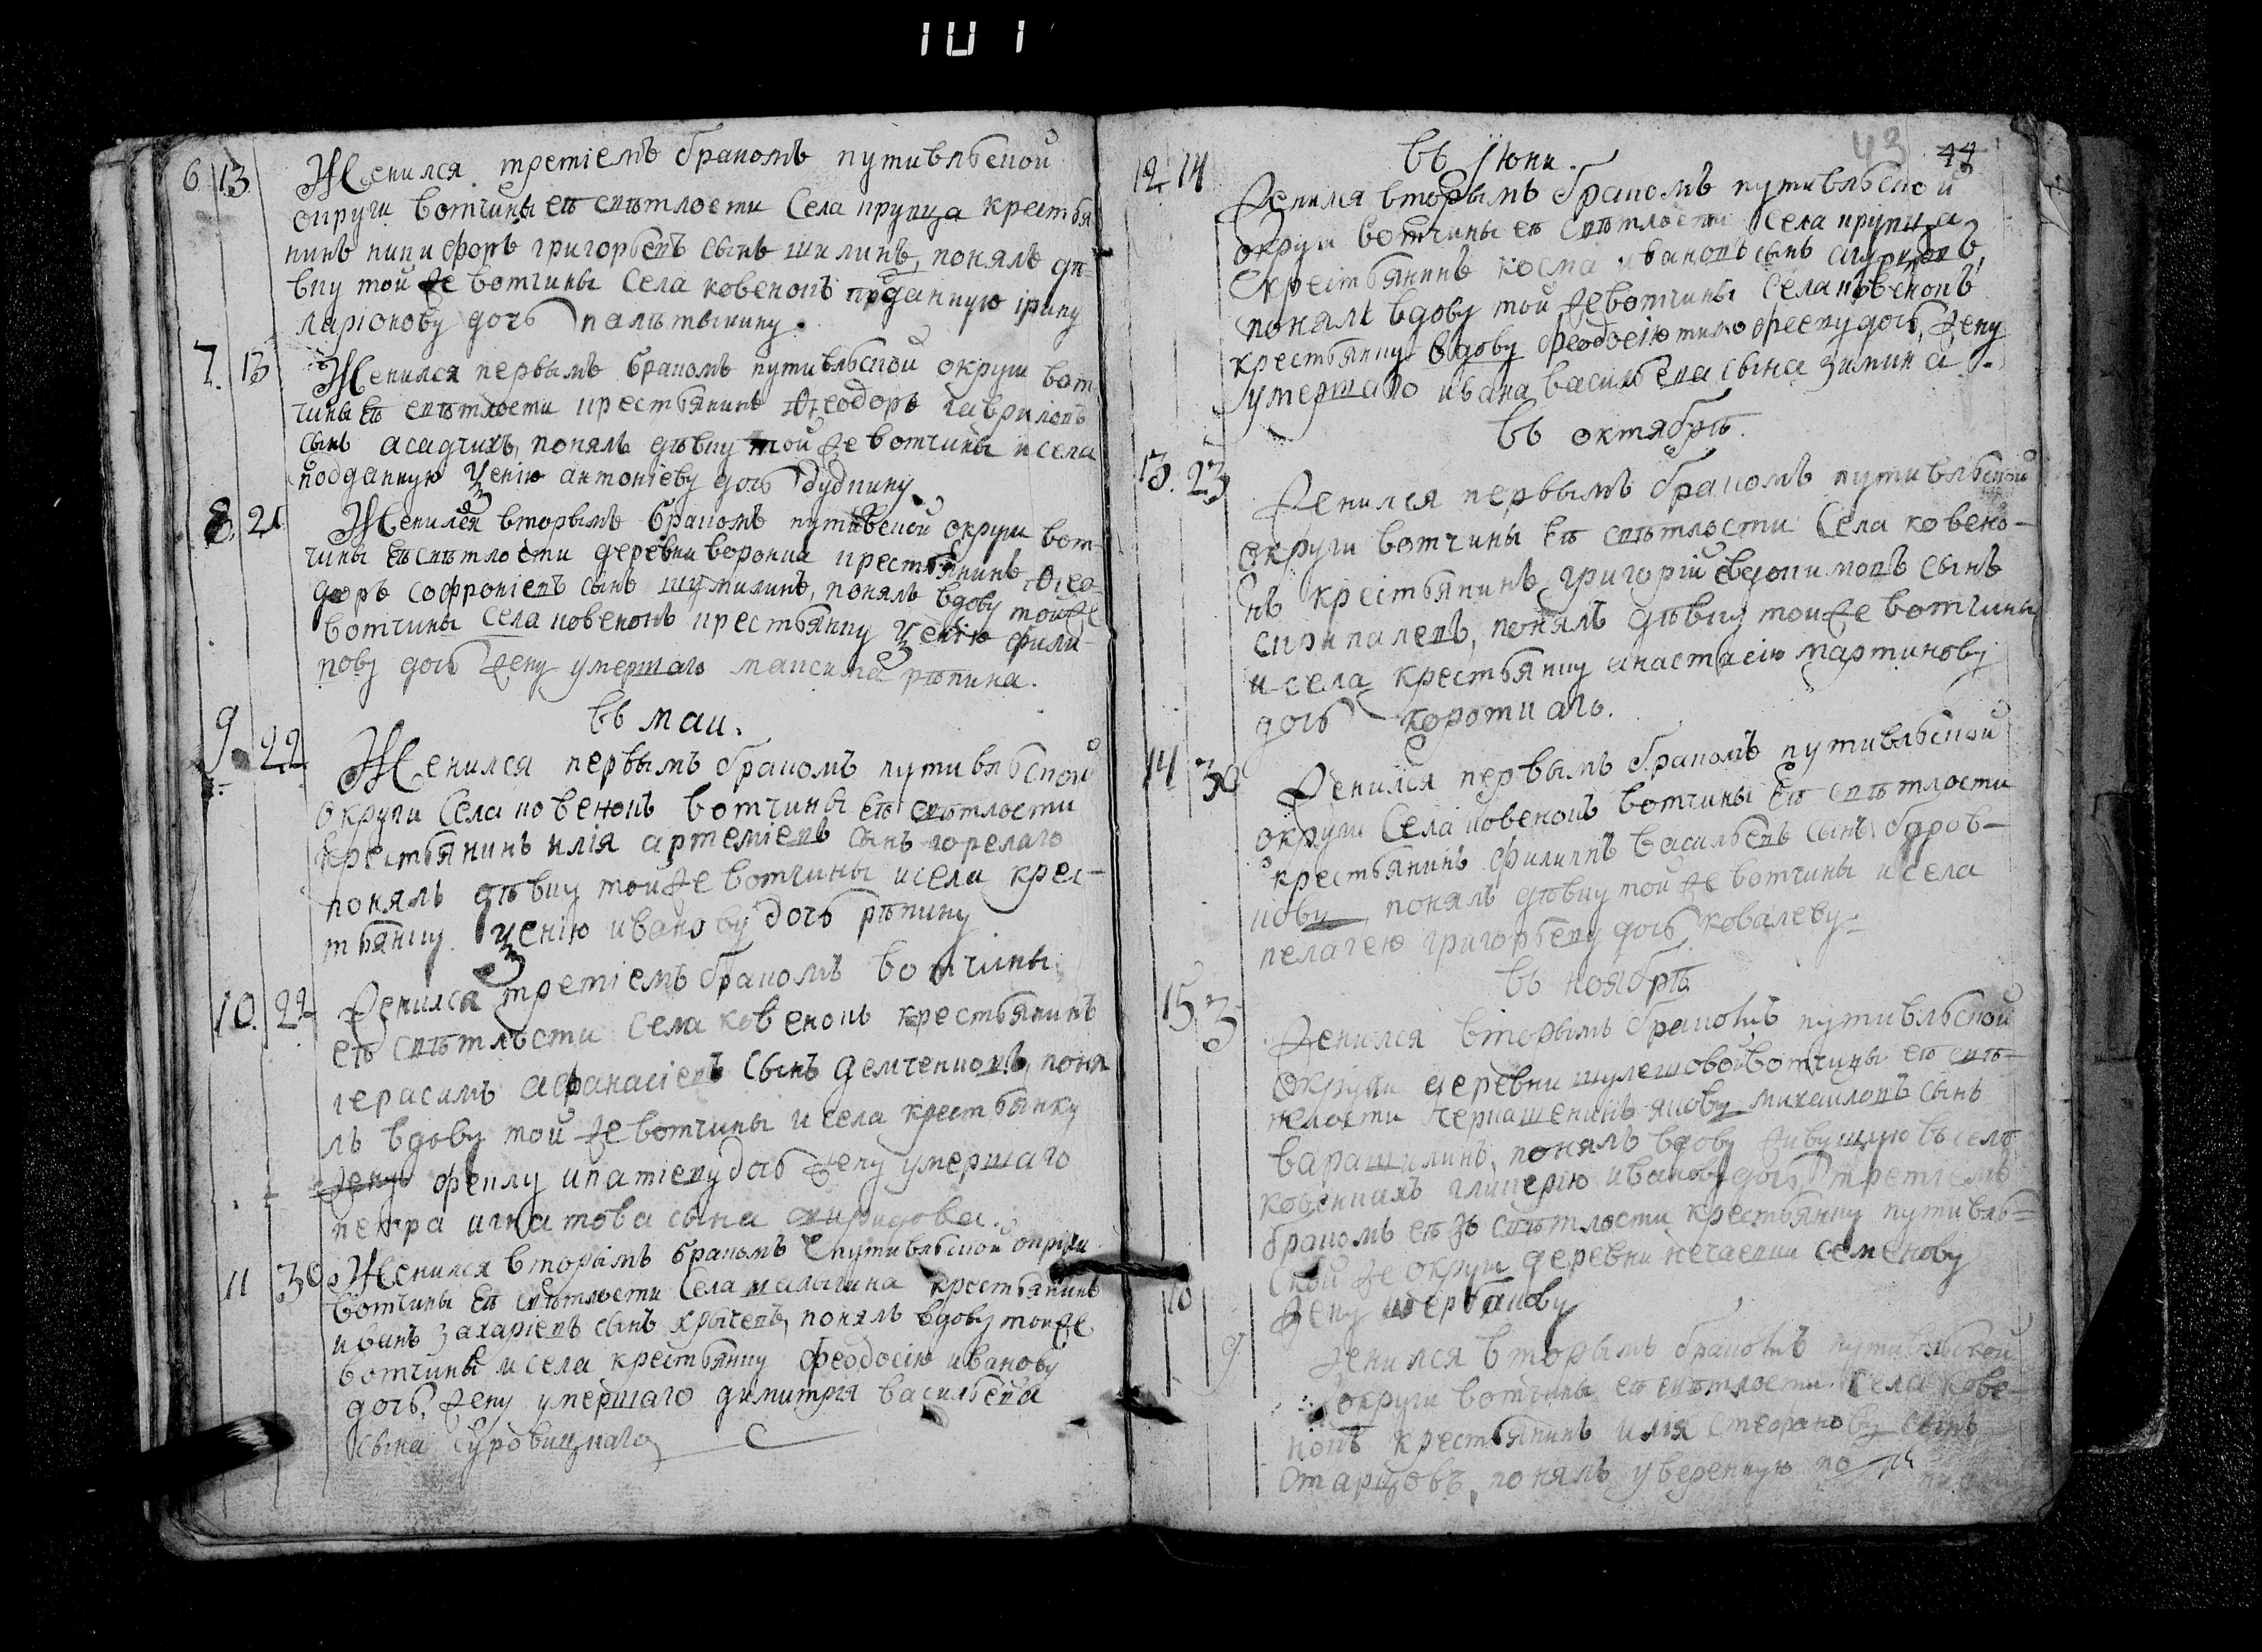 101
6 13 Женился третiемъ бракомъ путивльской
округи вотчины еѣ свѣтлости села крупца крестья
нинъ никифоръ григорьевъ сынъ шилинъ, понялъ дѣ
вку той же вотчины села ковенокъ подданную iрину
ларiонову дочь
7. 13 Женился первымъ бракомъ путивльской округи вот
чины еѣ свѣтлости крестьянинъ Ѳеодоръ гавриловъ
сынъ асадчихъ, понялъ дѣвку той же вотчины и села
подданную Ѯенiю антонiеву дочь дудкину
8. 21 Женился вторымъ бракомъ путивской округи вот-
чины еѣ свѣтлости деревни воронка крестьянинъ Ѳео-
доръ софронiевъ сынъ шумилинъ, понялъ вдову тойже
вотчины села ковенокъ крестьянку Ѯенiю фили-
пову дочь жену умершаго максима рѣпина.
въ маи.
9. 22 Женился первымъ бракомъ путивльской
округи села ковенокъ вотчины еѣ свѣтлости
крестьянинъ илiя артемiевъ сынъ горелаго
понялъ дѣвку той же вотчины и села крес-
тьянку Ѯенiю иванову дочь рѣпину
10. 22 Женился третiемъ бракомъ вотчины
еѣ свѣтлости села ковенокъ крестьянинъ
герасимъ афанасiевъ сынъ демченковъ, поня
лъ вдову той же вотчины и села крестьянку
жену феклу ипатiеву дочь жену умершаго
петра игнатова сына спиридова.
11 30 Женился вторымъ бракомъ путивльской округи
вотчины еѣ свѣтлости села малыгина крестьянинъ
иванъ захарiевъ сынъ хрычевъ, понялъ вдову тойже
вотчины и села крестьянку феодосiю иванову
дочь, жену умершаго димитрiя васильева
сына суровицкаго
43 44
въ Iюни.
12. 14 Женился вторымъ бракомъ путивльской
округи вотчины еѣ свѣтлости села крупца
крестьянинъ косма ивановъ сынъ
понялъ вдову той же вотчины села ковенокъ
крестьянку вдову феодосiю тимофееву дочь, жену
умершаго ивана васильева сына зимина.
въ октябрѣ.
13. 23 Женился первымъ бракомъ путивльской
округи вотчины еѣ свѣтлости села ковено-
къ крестьянинъ григорiй евдокимовъ сынъ
скрипалевъ, понялъ дѣвку той же вотчины
и села крестьянку анастасiю мартинову
дочь короткаго.
14 30 Женился первымъ бракомъ путивльской
округи села ковенокъ вотчины еѣ свѣтлости
крестьянинъ филиппъ васильевъ сынъ боров-
понялъ дѣвку той же вотчины и села
пелагею григорьеву дочь ковалеву.
въ ноябрѣ
15 3 Женился вторымъ бракомъ путивльской
округи деревни шулешовой вотчины еѣ свѣ-
тлости черкашенинъ якову михаиловъ сынъ
варашилинъ, понялъ вдову живущую въ селѣ
ковенкахъ гликерiю иванову дочь третiемъ
бракомъ еѣ жъ свѣтлости крестьянку путивль-
ской же округи деревни нечаевки семенову
жену щербакову
16 9 Женился вторымъ бракомъ путивльской
округи вотчины еѣ свѣтлости села кове-
нокъ крестьянинъ илiя стефанову сынъ
старцовъ, понялъ уверенную по